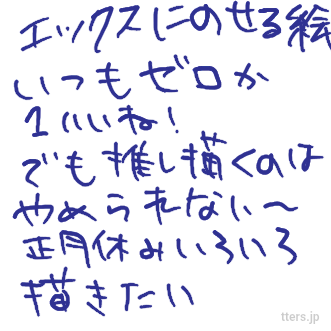 エックスにのせる絵
いつもゼロか
1いいね!
でも推し描くのは
やめられない〜
正月休みいろいろ
描きたい
tters.jp